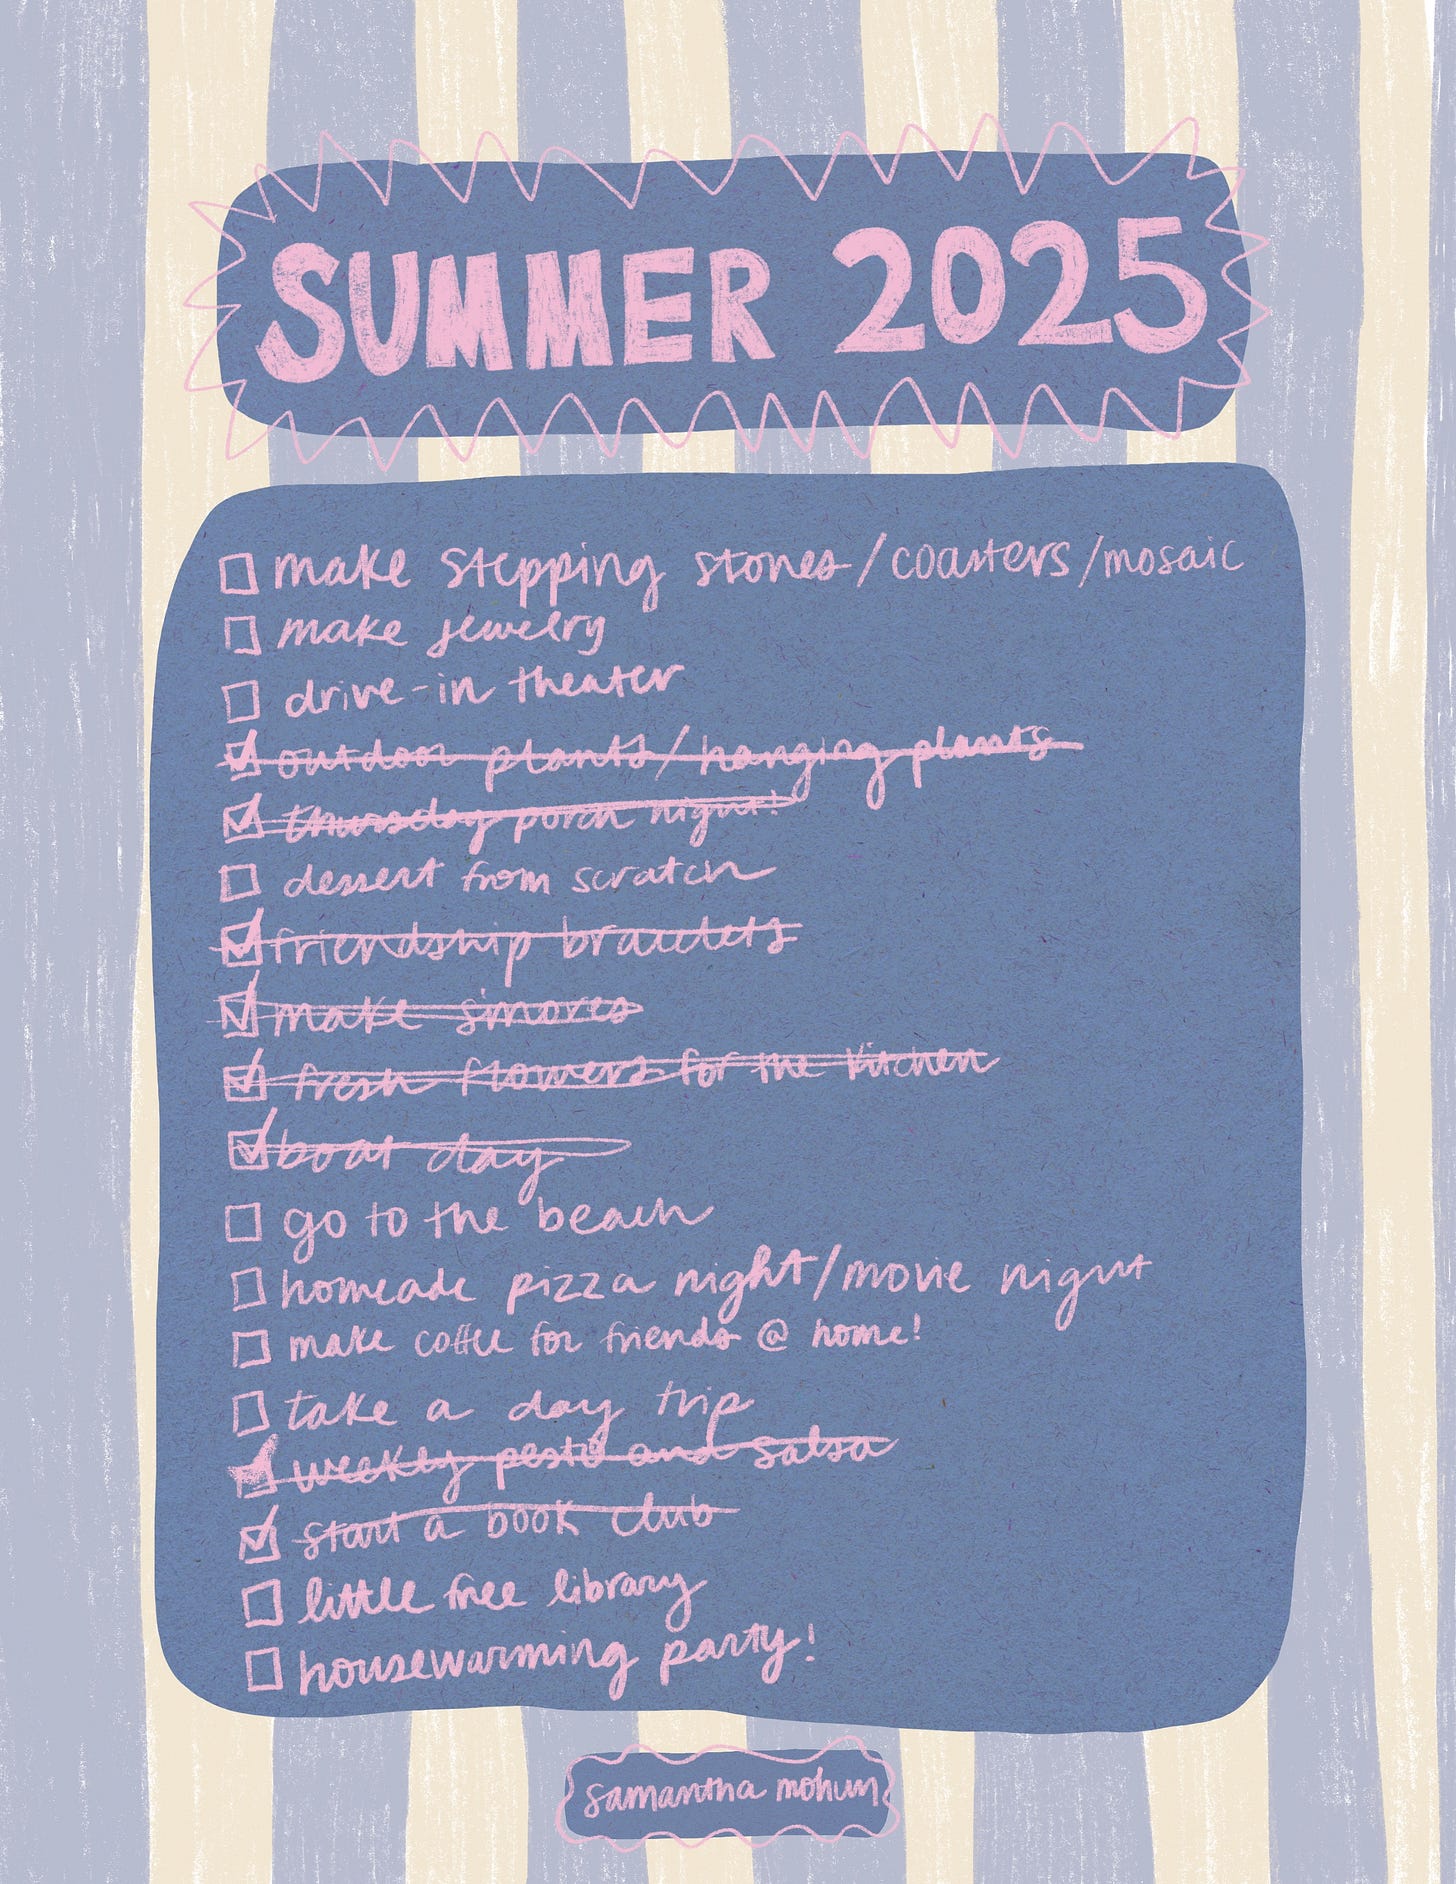 SUMMER 2025
make stepping stones/coasters/mosaic
make jewelry
drive-in theater
outdoor plants/hanging plants
thursday porch night!
dessert from scratch
friendship bracelets
make s'mores
fresh flowers for the kitchen
boat day
go to the beach
homeade pizza night/movie night
make coffee for friends @ home!
take a day trip
weekly pesto and salsa
start a book club
little free library
housewarming party!
samantha mohun